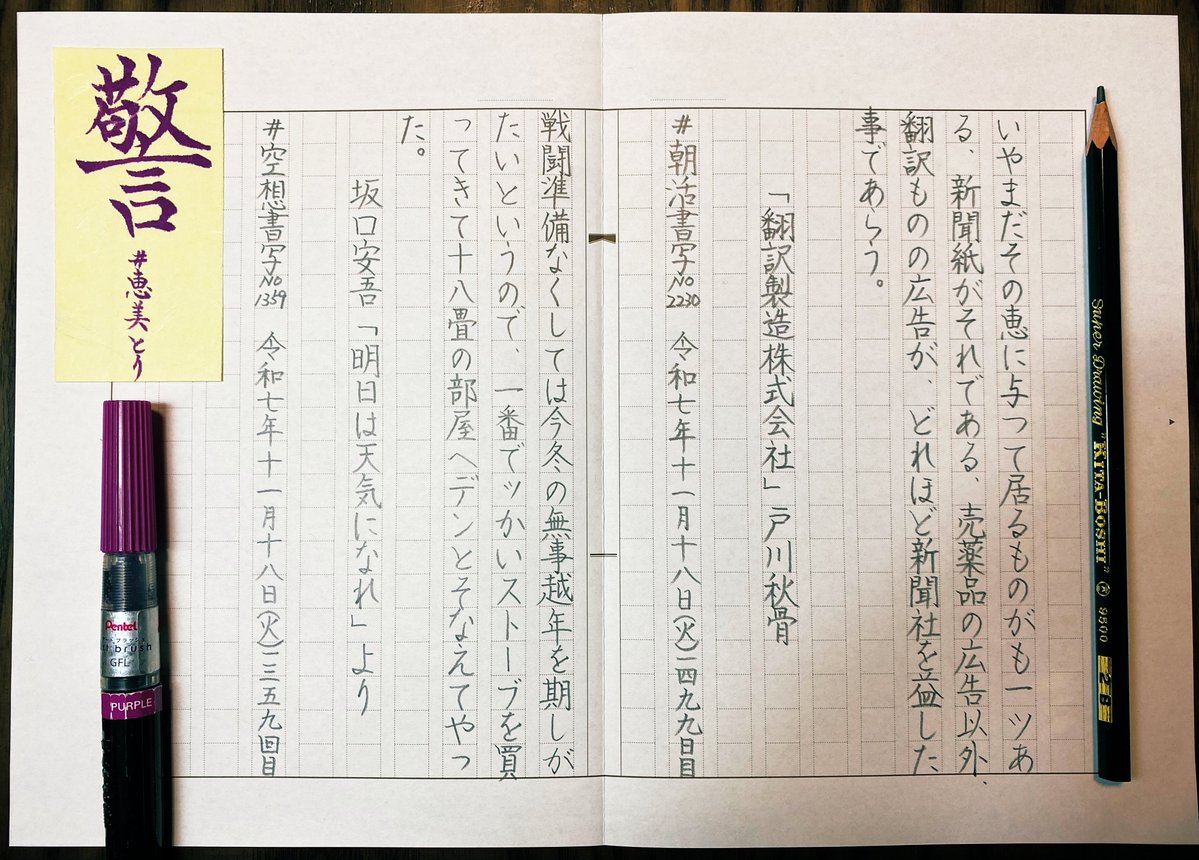 いやまだその恵に与つて居るものがも一ツあ
る、新聞紙がそれである、売薬品の広告以外、
翻訳ものの広告が、どれほど新聞社を益した
事であらう。
「翻訳製造株式会社」戸川秋骨
#朝活書写No2230 令和七年十一月十八日(火)一四九九日目
戦闘準備なくしては今冬の無事越年を期しが
たいというので、一番でッかいストーブを買
ってきて十八畳の部屋へデンとそなえてやっ
た。
坂口安吾「明日は天気になれ」より
#空想書写No1359 令和七年十一月十八日(火)一三五九回目
警
#恵美とり
Pentel
アートブラッシュ
Art brush
GFL
PURPLE
Super Drawing "KITA-BOSHI" 9500 2B